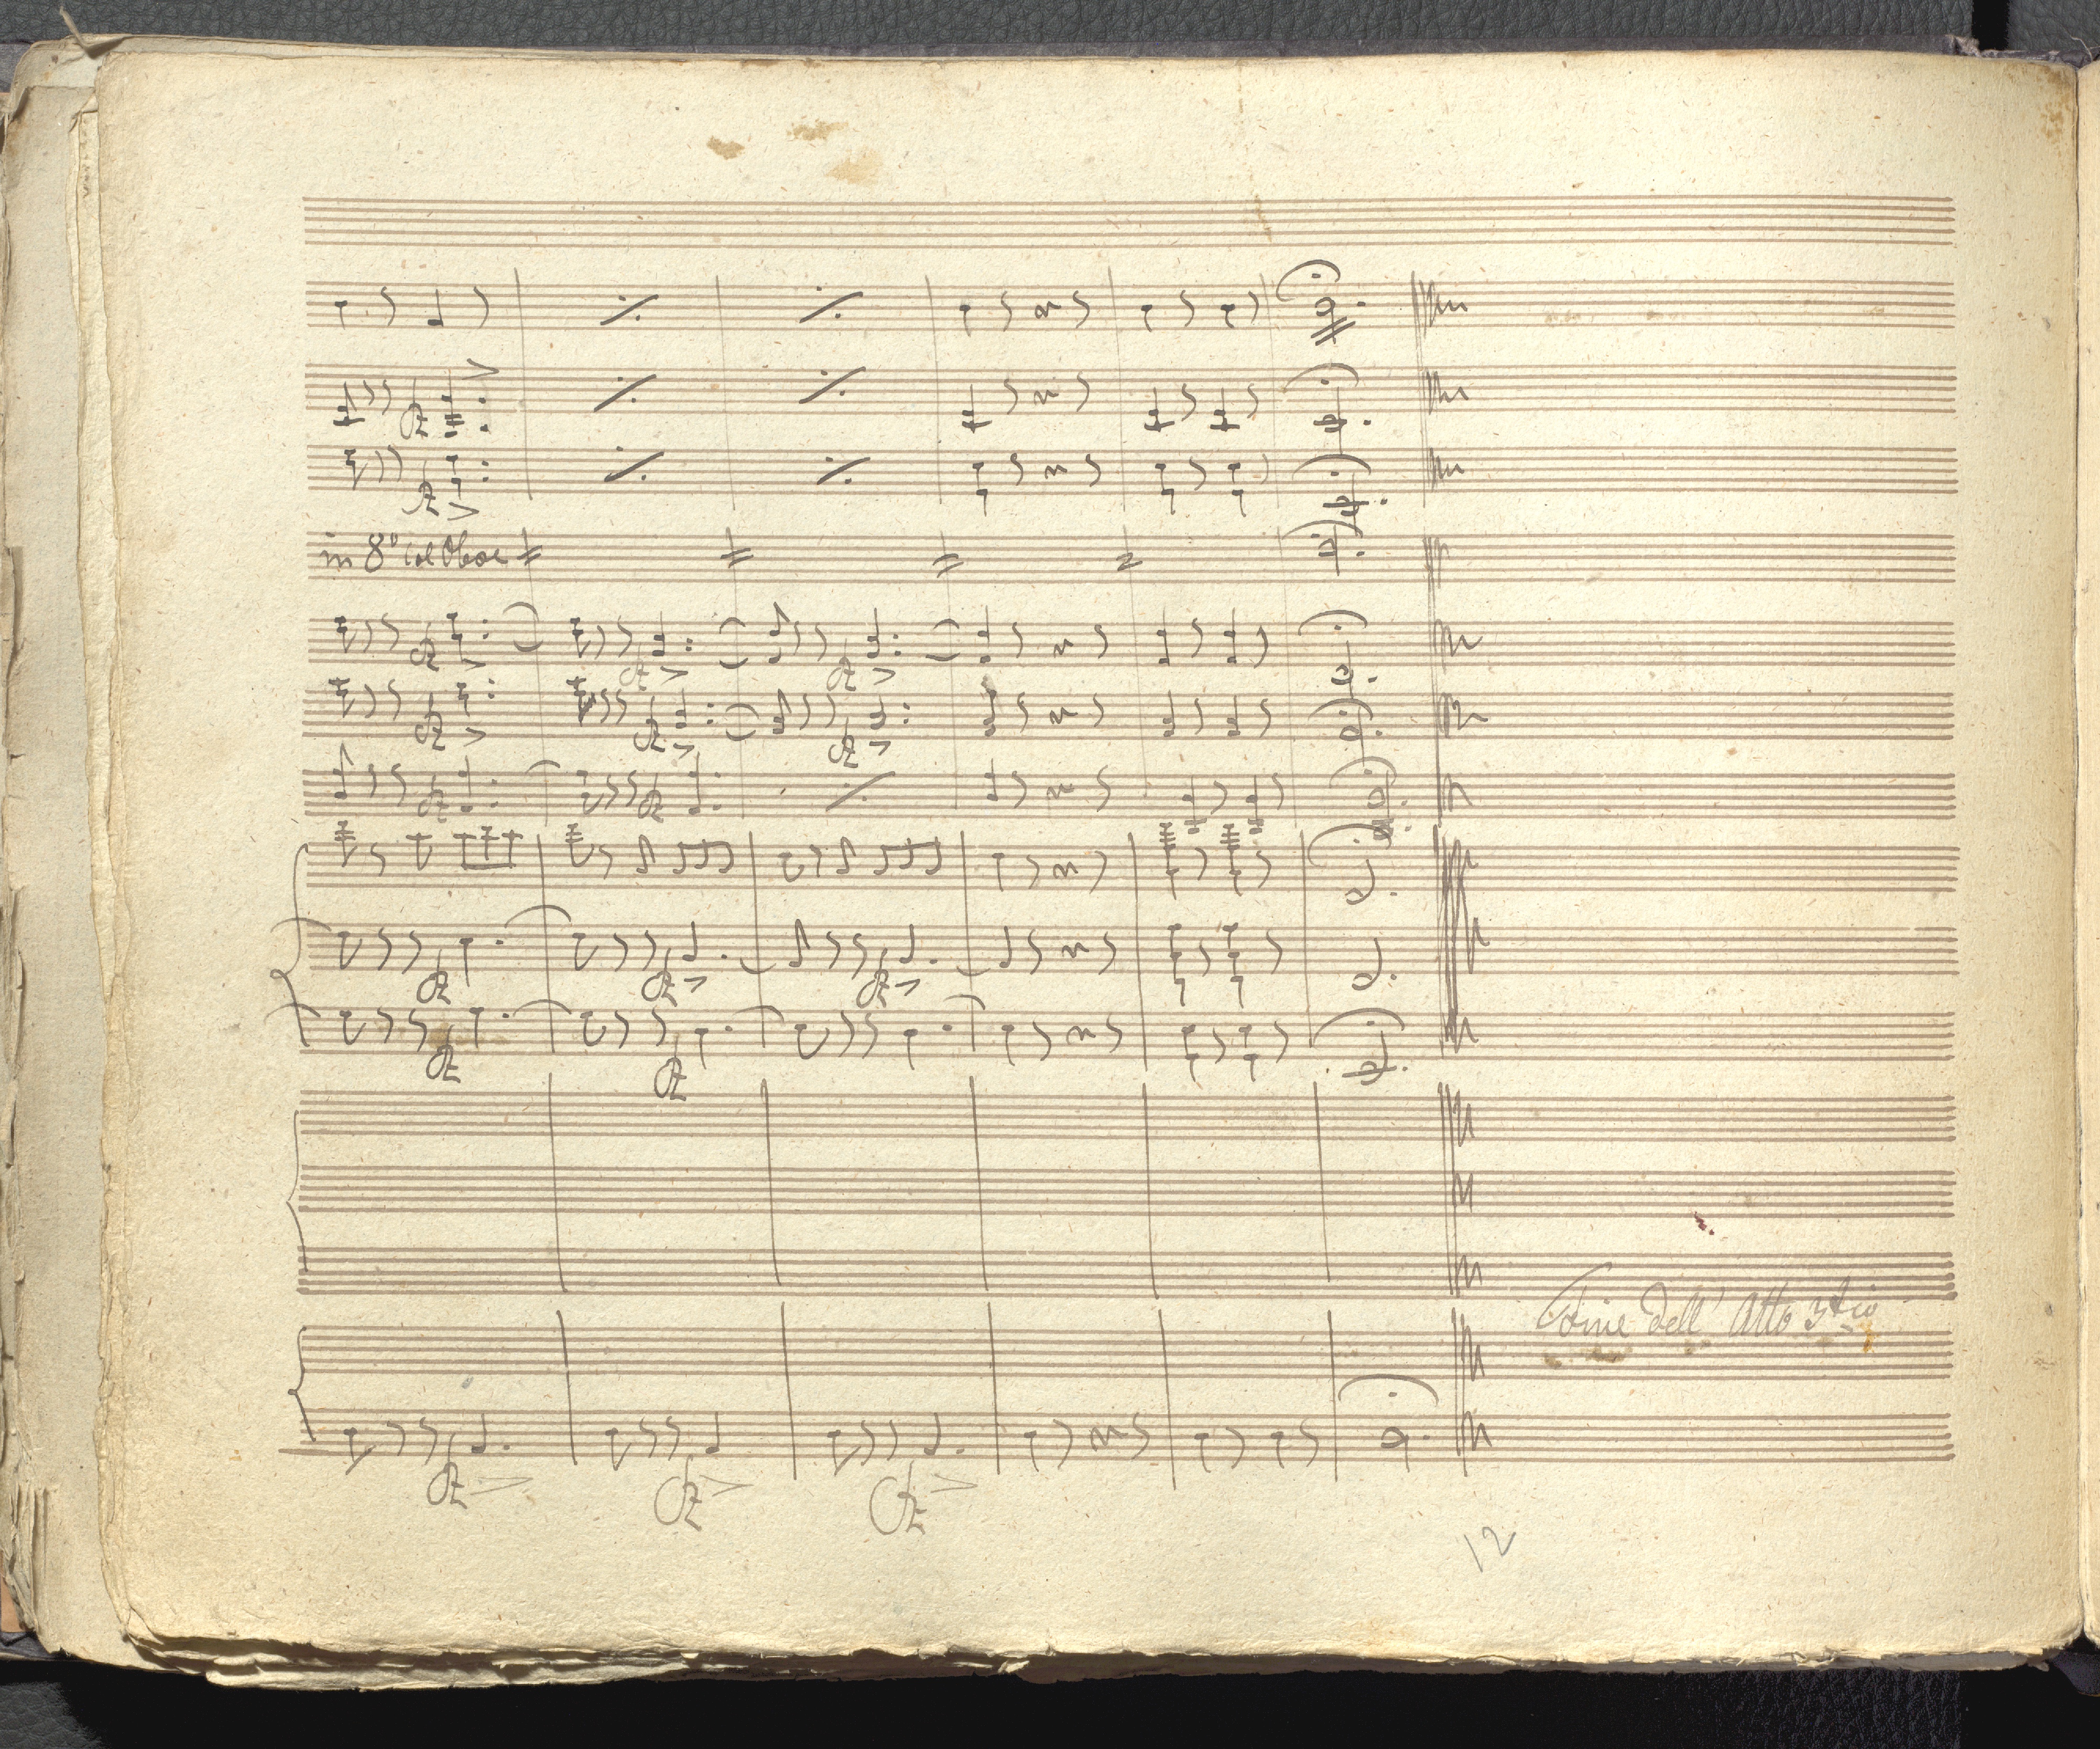 in 8ª col Oboe
Fine dell' Atto 3tio
12